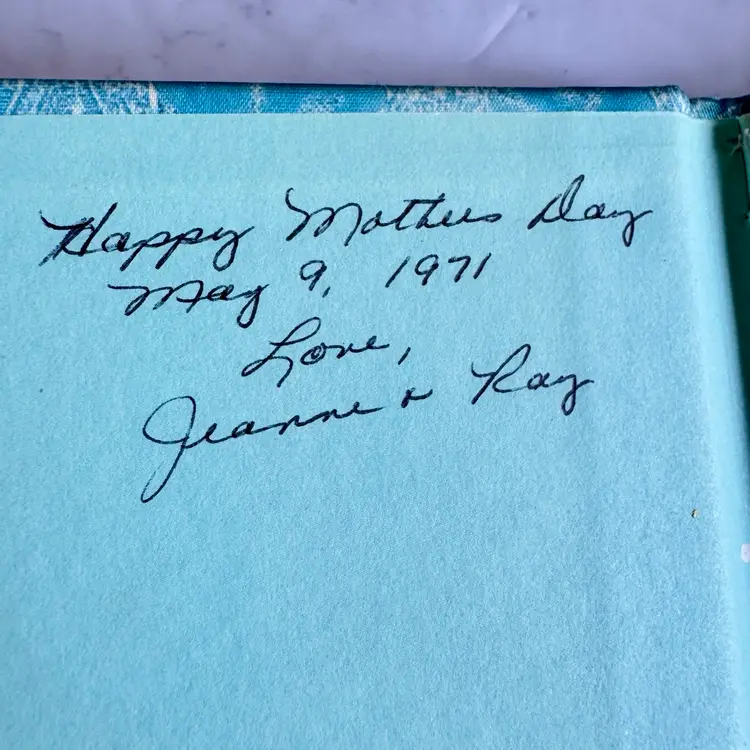 Happy Mothers Day
May 9, 1971
Love,
Jeanne & Ray